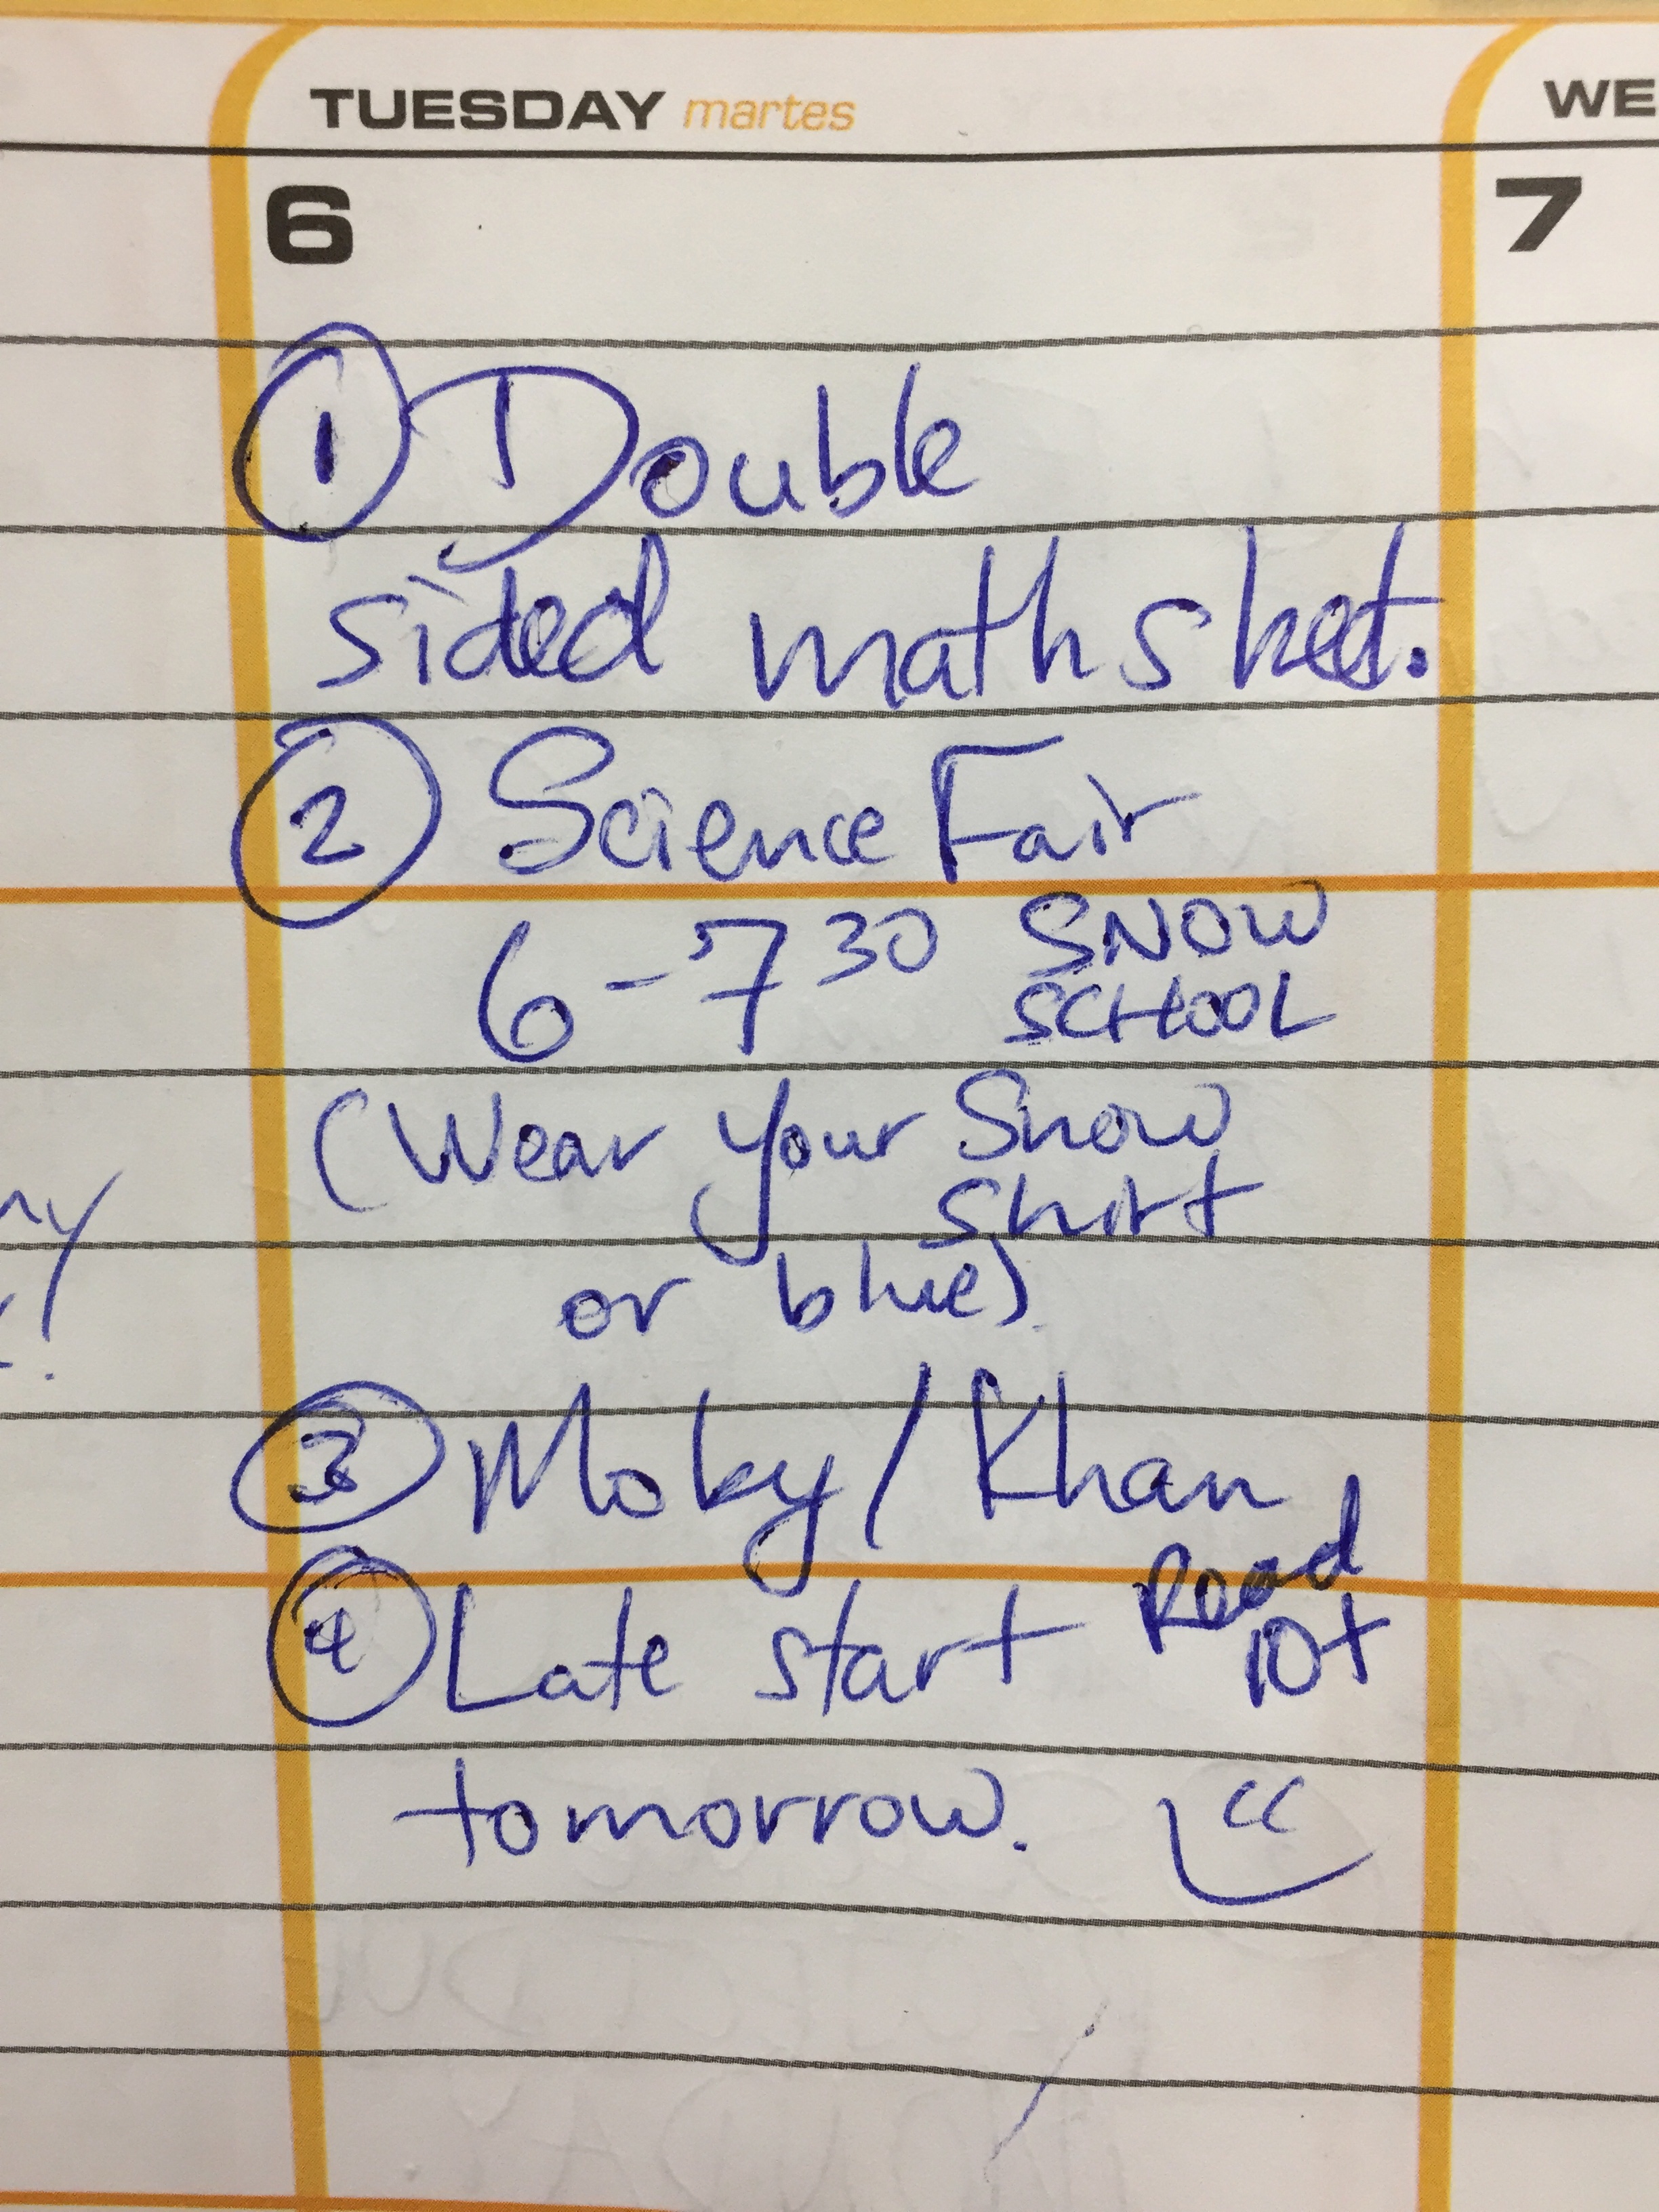 TUESDAY martes
WE
6
7
① Double
sided math sheet.
② Science Fair
6-7³⁰ SNOW
SCHOOL
(Wear your Snow
Shirt
or blue)
③ Moby/Khan
Read
10+
④ Late start
tomorrow.